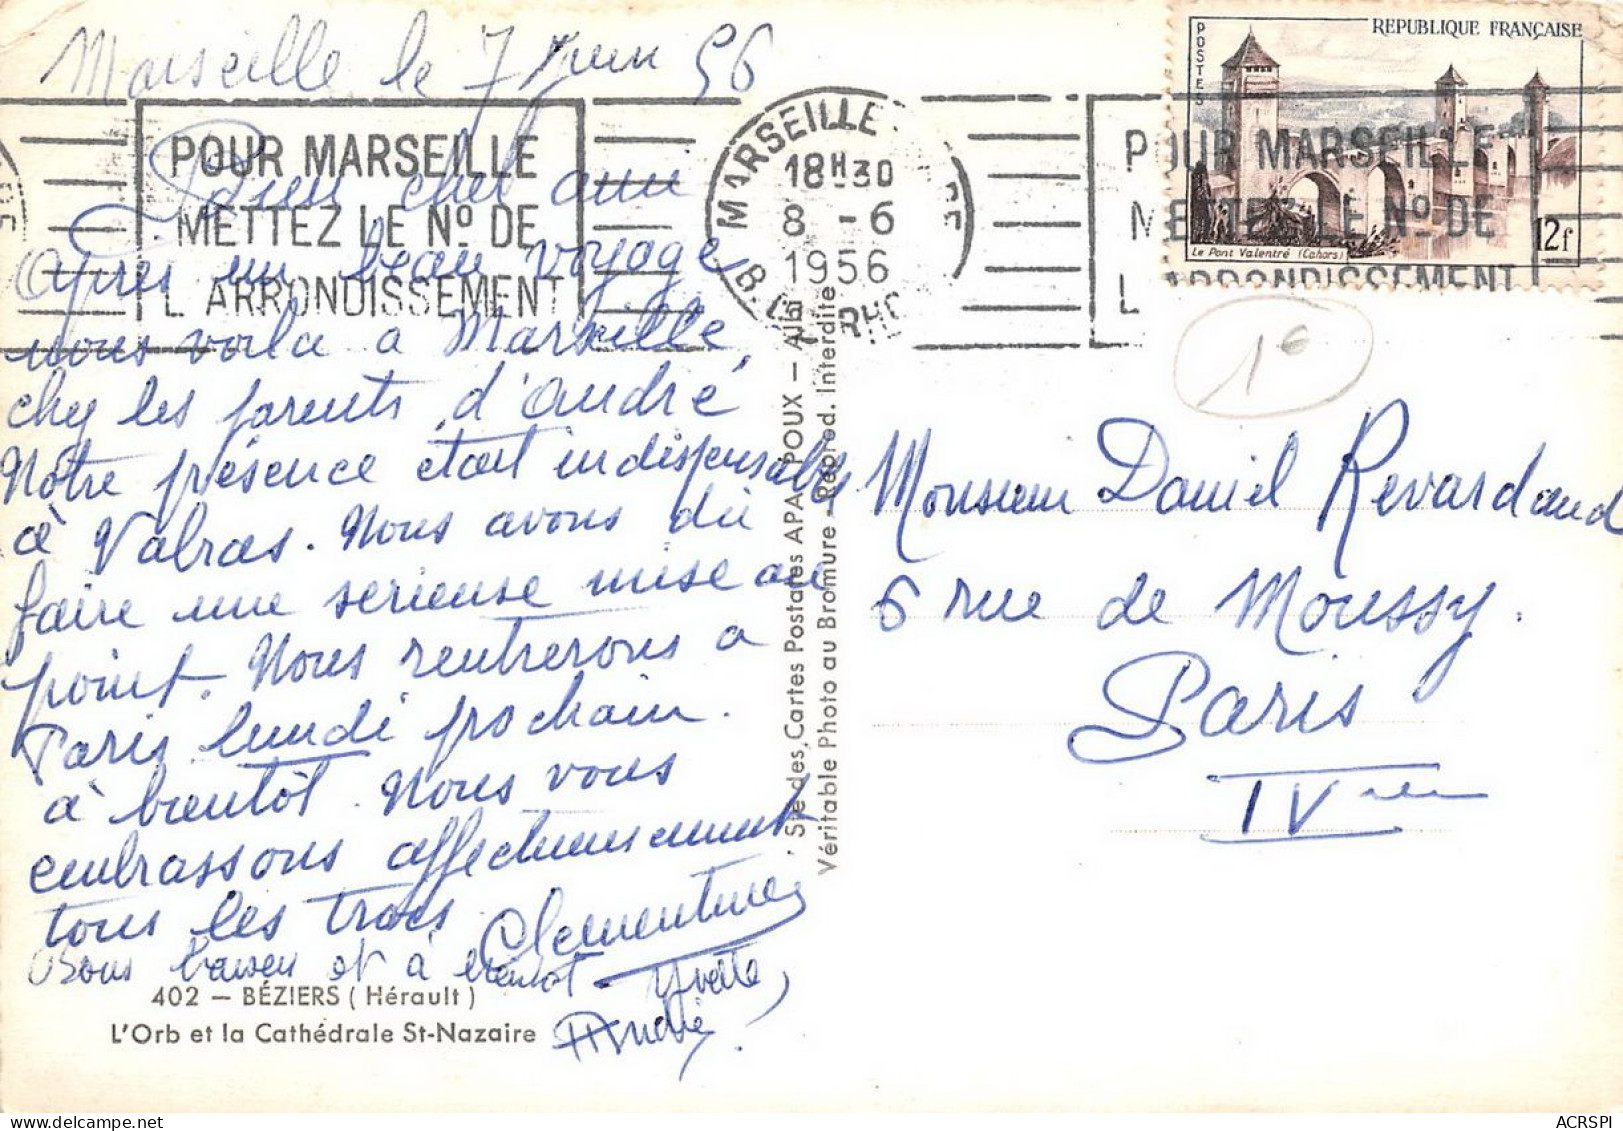 Marseille le 7 Juin 56
Bien cher ami
Après un beau voyage
nous voila à Marseille,
chez les parents d'André
Notre présence était indispensable
à Valras. Nous avons dû
faire une serieuse mise au
point. Nous rentrerons a
Paris lundi prochain.
à bientôt. Nous vous
embrassons affectueusement
tous les trois
Clementine
Bons baisers et à bientôt
Yvette,
André
402 — BÉZIERS (Hérault)
L'Orb et la Cathédrale St-Nazaire
POUR MARSEILLE
METTEZ LE Nº DE
L'ARRONDISSEMENT
MARSEILLE
18H30
8 -6
1956
B. DU RHONE
POUR MARSEILLE
METTEZ LE Nº DE
L'ARRONDISSEMENT
POSTES
REPUBLIQUE FRANÇAISE
Le Pont Valentré (Cahors)
12f
1€
Ste des Cartes Postales APA-POUX — Albi
Véritable Photo au Bromure - Reprod. Interdite
Monsieur Daniel Revardeaud
6 rue de Moussy.
Paris
IVeme
ACRSPI